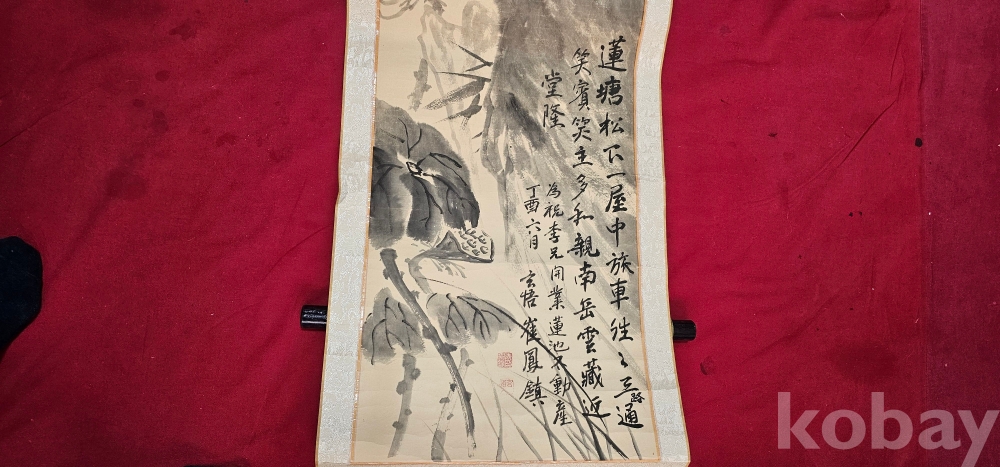 蓮塘松下一屋中旅車往々三路通
笑賓笑主多和親南岳雲藏近
堂隆
為祝李兄開業蓮池不動産
丁酉六月 玄悟 崔鳳鎮
kobay